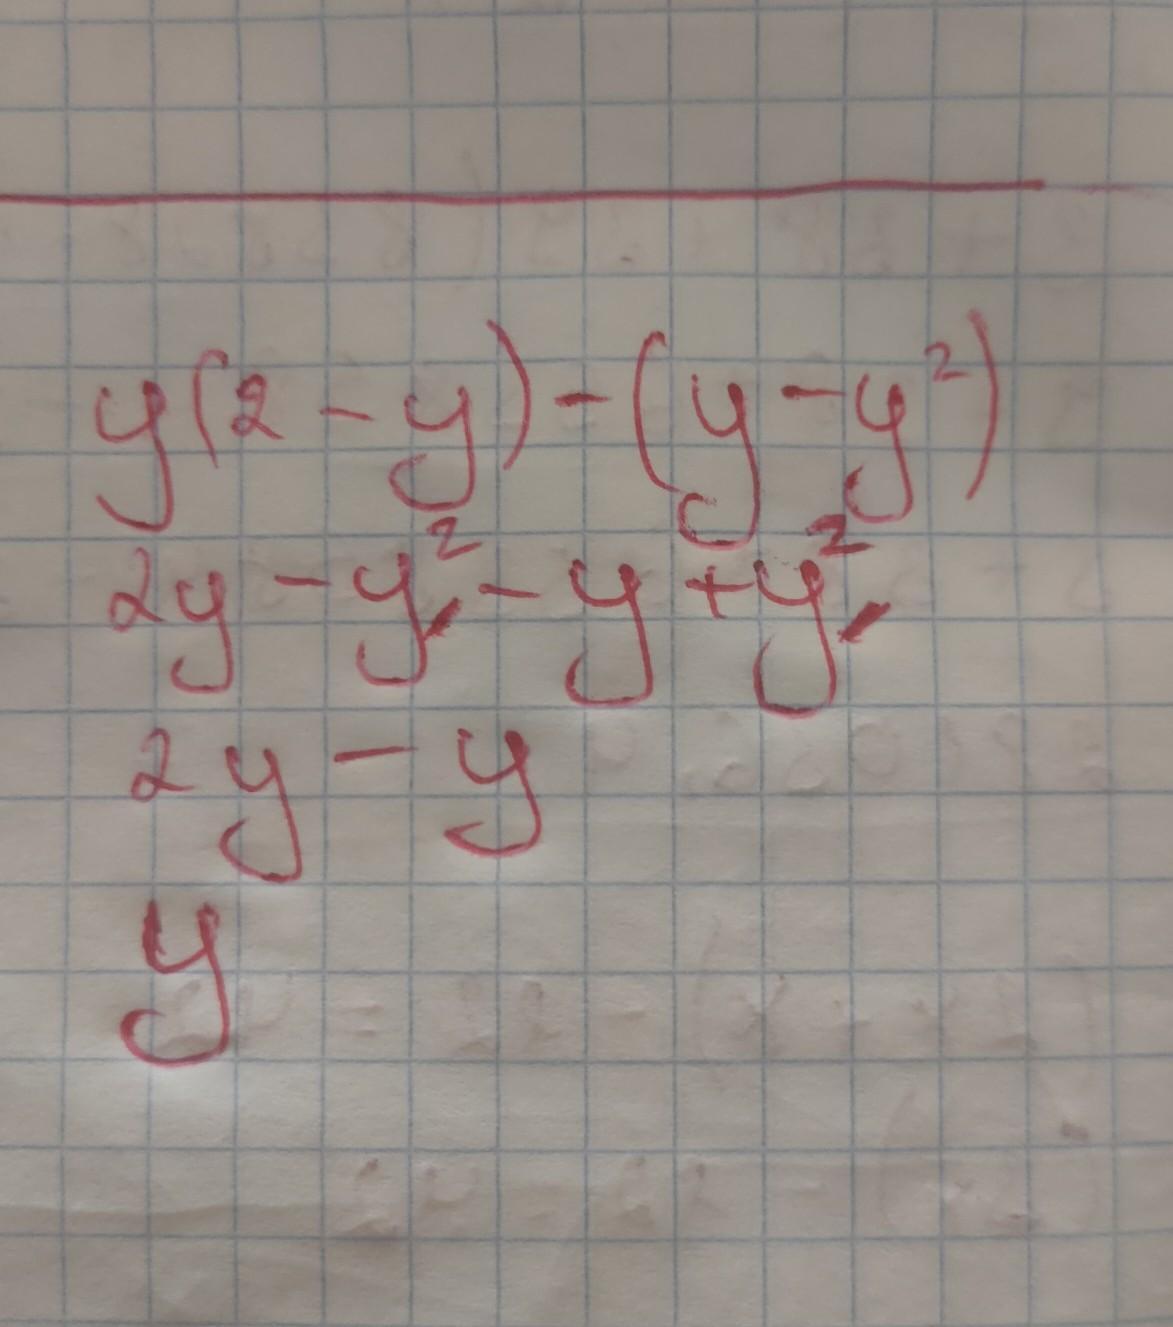 y(2 - y) - (y - y²)
2y - y² - y + y²
2y - y
y